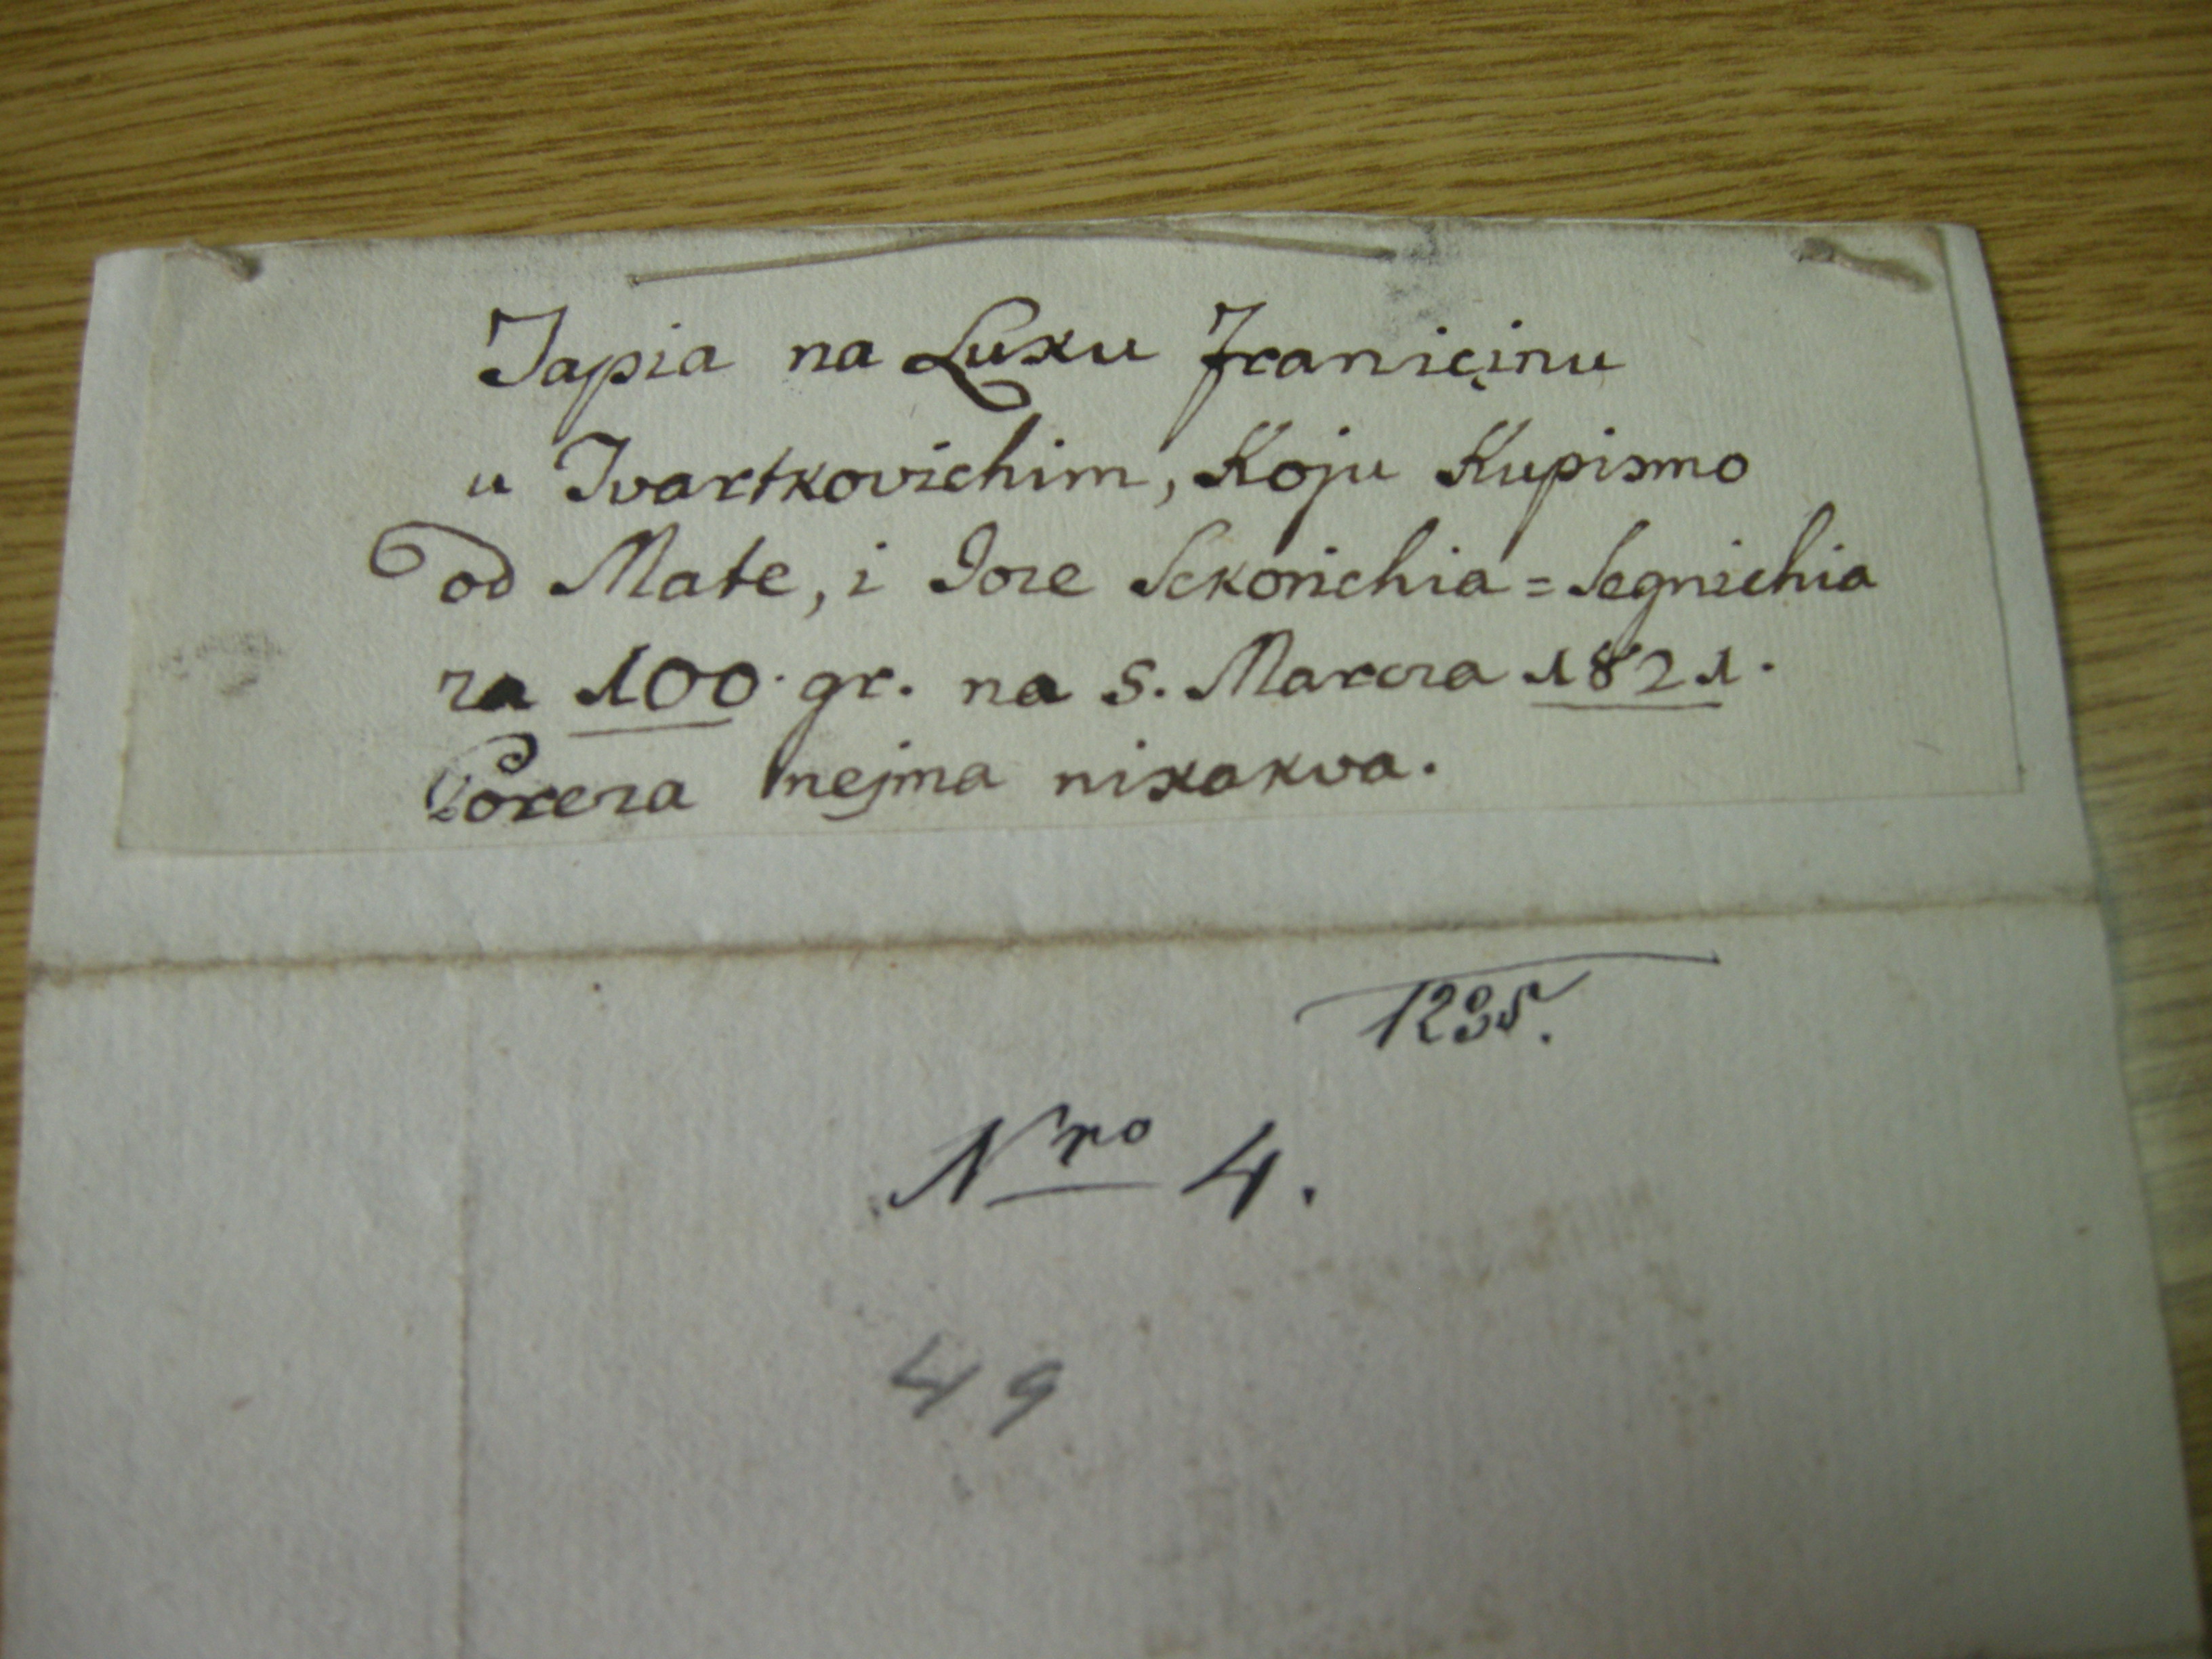 Tapia na Luxu Franicinu
u Tvartkovichim, Koju Kupismo
od Mate, i Joze Sckorichia = Segnichia
za 100. gr. na 5. Marcza 1821.
Poreza nejma nikakva.
1235.
Nro 4.
49